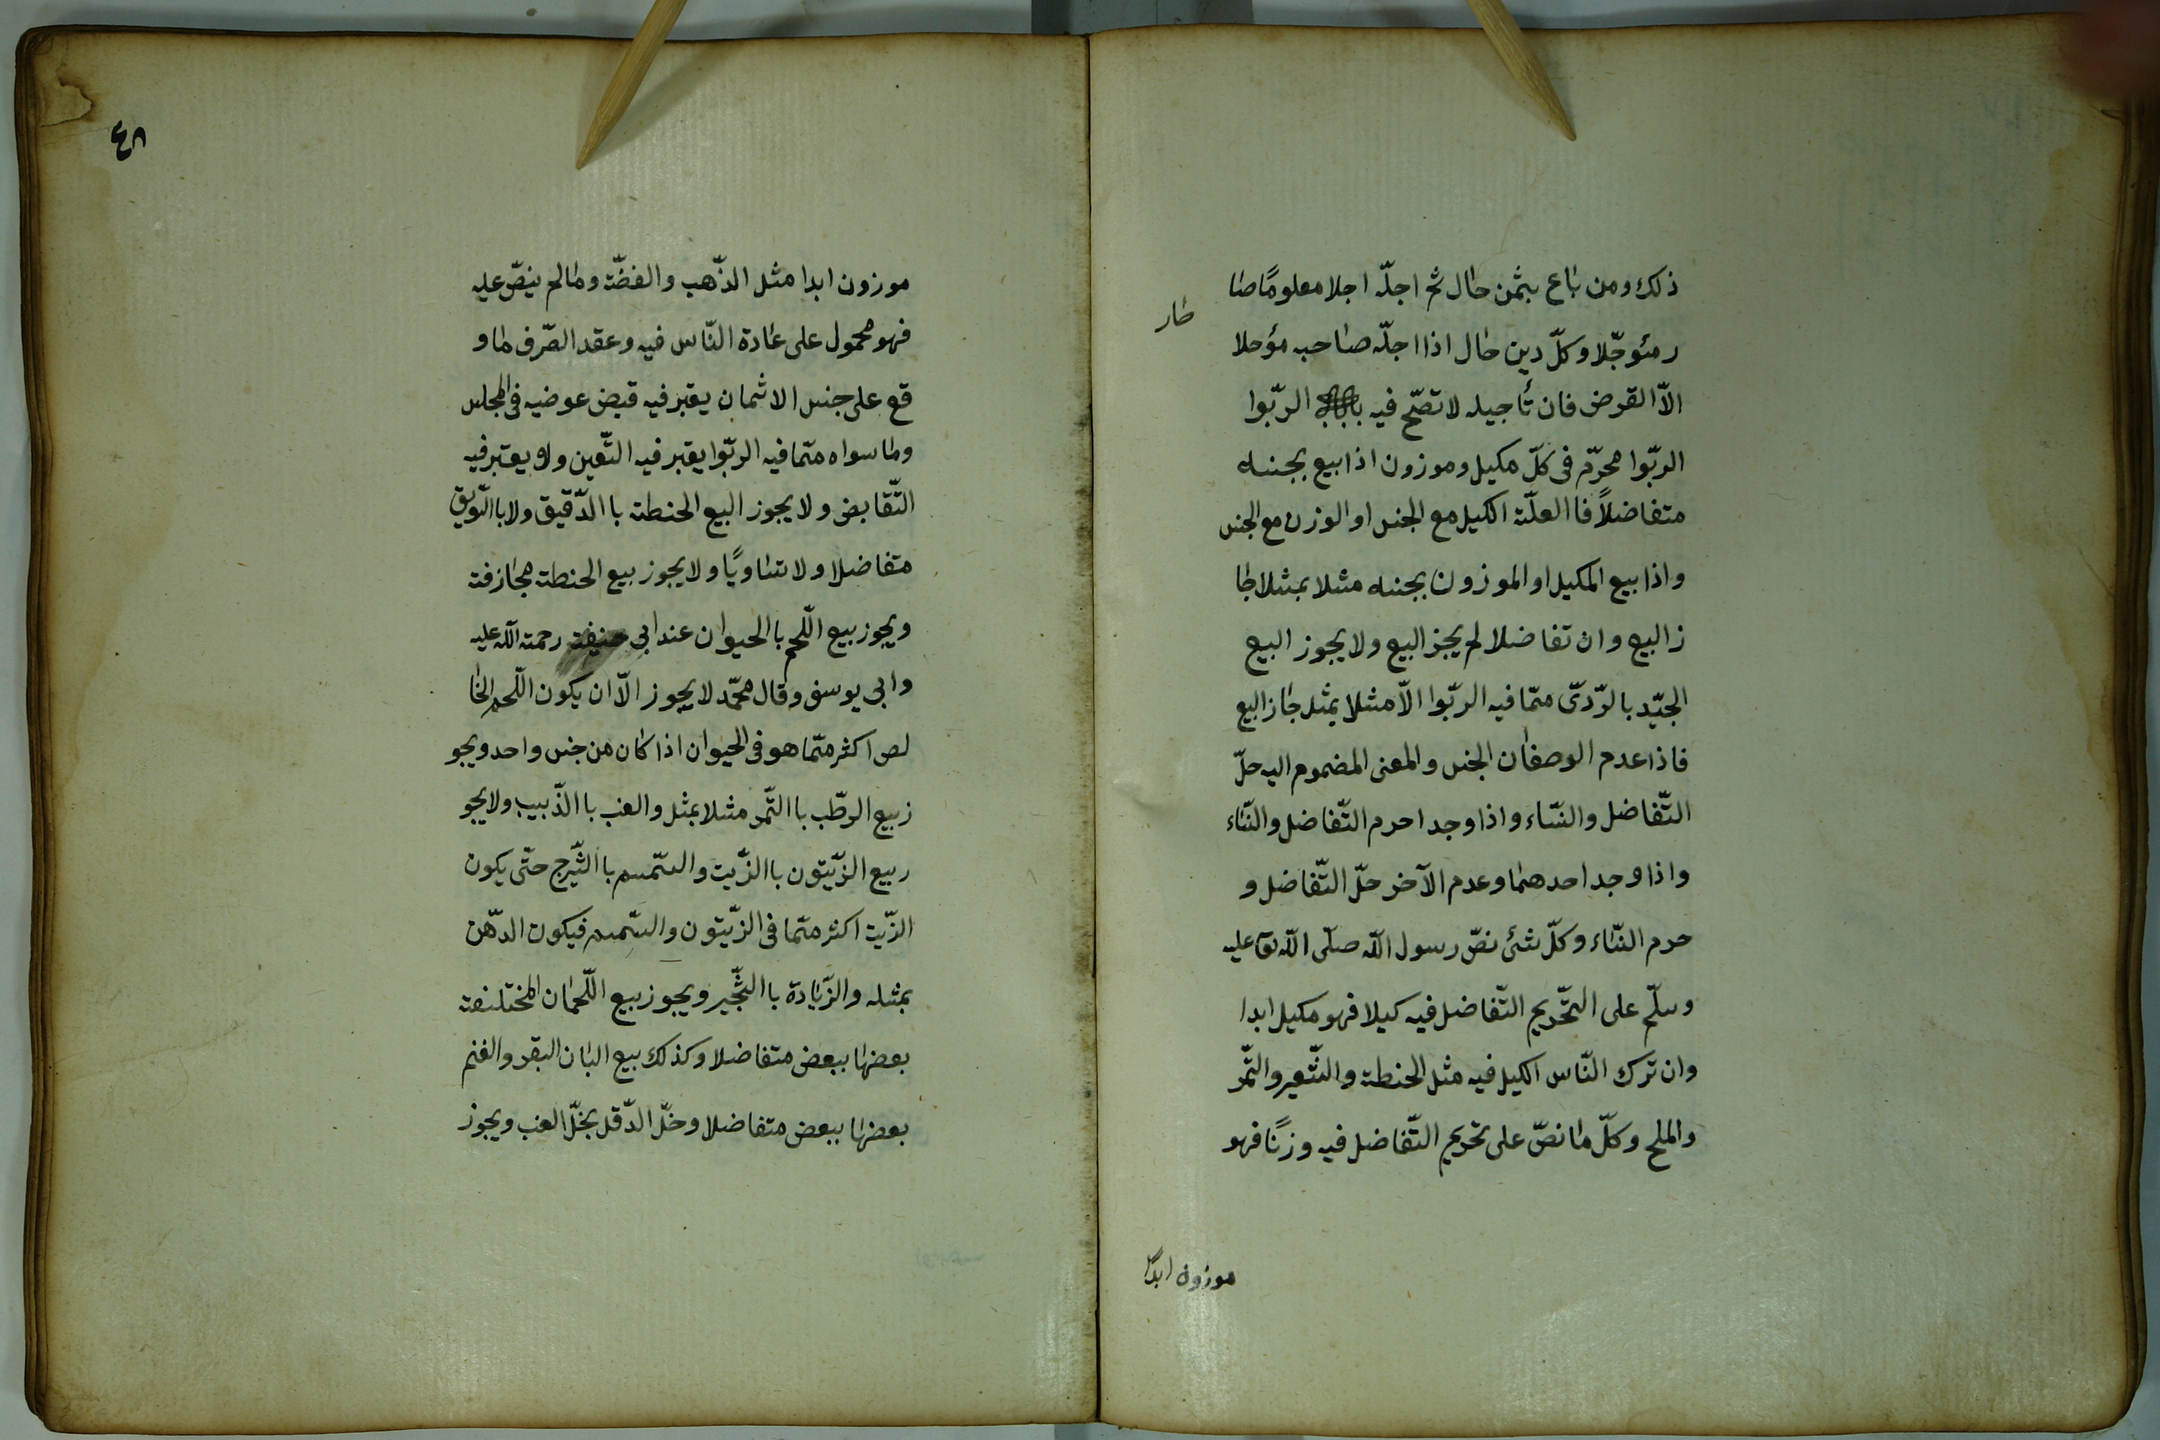 ذلك ومن باع بثمن حال ثم اجلّه اجلا معلومًا صا
طار
ر مئوجّلا وكلّ دين حال اذا اجلّه صاحبه مؤجلا
الاّ القرض فان تأجيله لا تصّح فيه باب الربّوا
الربّوا محرّم فى كلّ مكيل وموزون اذا بيع بجنسه
متفاضلاً فا العلّة الكيل مع الجنس او الوزن مع الجنس
واذا بيع المكيل او الموزون بجنسه مثلا بمثلا جا
ز البيع وان تفاضلا لم يجز البيع ولا يجوز البيع
الجيّد بالرّدىّ ممّا فيه الربّوا الاّ مثلا بمثل جاز البيع
فاذا عدم الوصفان الجنس والمعنى المضموم اليه حلّ
التّفاضل والنسّاء واذا وجدا حرم التّفاضل والنسّاء
واذا وجد احدهما وعدم الآخر حلّ التّفاضل و
حرم النسّاء وكلّ شئ نصّ رسول اللّه صلّى اللّه تعا عليه
وسلّم على التّحريم التّفاضل فيه كيلا فهو مكيل ابدا
وان ترك النّاس الكيل فيه مثل الحنطة والشّعير والتّمر
والملح وكلّ ما نصّ على تحريم التّفاضل فيه وزنًا فهو
موزون ابدا
٤٨
موزون ابدا مثل الذّهب والفضّة وما لم ينصّ عليه
فهو محمول على عادة النّاس فيه وعقد الصّرف ما و
قع على جنس الاثمان يعتبر فيه قبض عوضيه فى المجلس
وما سواه ممّا فيه الربّوا يعتبر فيه التّعين ولا يعتبر فيه
التّقابض ولا يجوز البيع الحنطة با الدّقيق ولا با السّويق
متفاضلا ولا متساويًا ولا يجوز بيع الحنطة مجازفة
ويجوز بيع اللّحم با الحيوان عند ابى حنيفة رحمة اللّه عليه
وابى يوسف وقال محمّد لا يجوز الاّ ان يكون اللّحم الخا
لص اكثر ممّا هو فى الحيوان اذا كان من جنس واحد ويجو
ز بيع الرطّب با التّمر مثلا بمثل والعنب با الذّبيب ولا يجو
ر بيع الزّيتون با الزّيت والسّمسم با الشّيرج حتّى يكون
الزّيت اكثر ممّا فى الزّيتون والسّمسم فيكون الدّهن
بمثله والزّيادة با الثّجير ويجوز بيع اللّحمان المختلفة
بعضها ببعض متفاضلا وكذلك بيع البان البقر والغنم
بعضها ببعض متفاضلا وخلّ الدّقل بخلّ العنب ويجوز